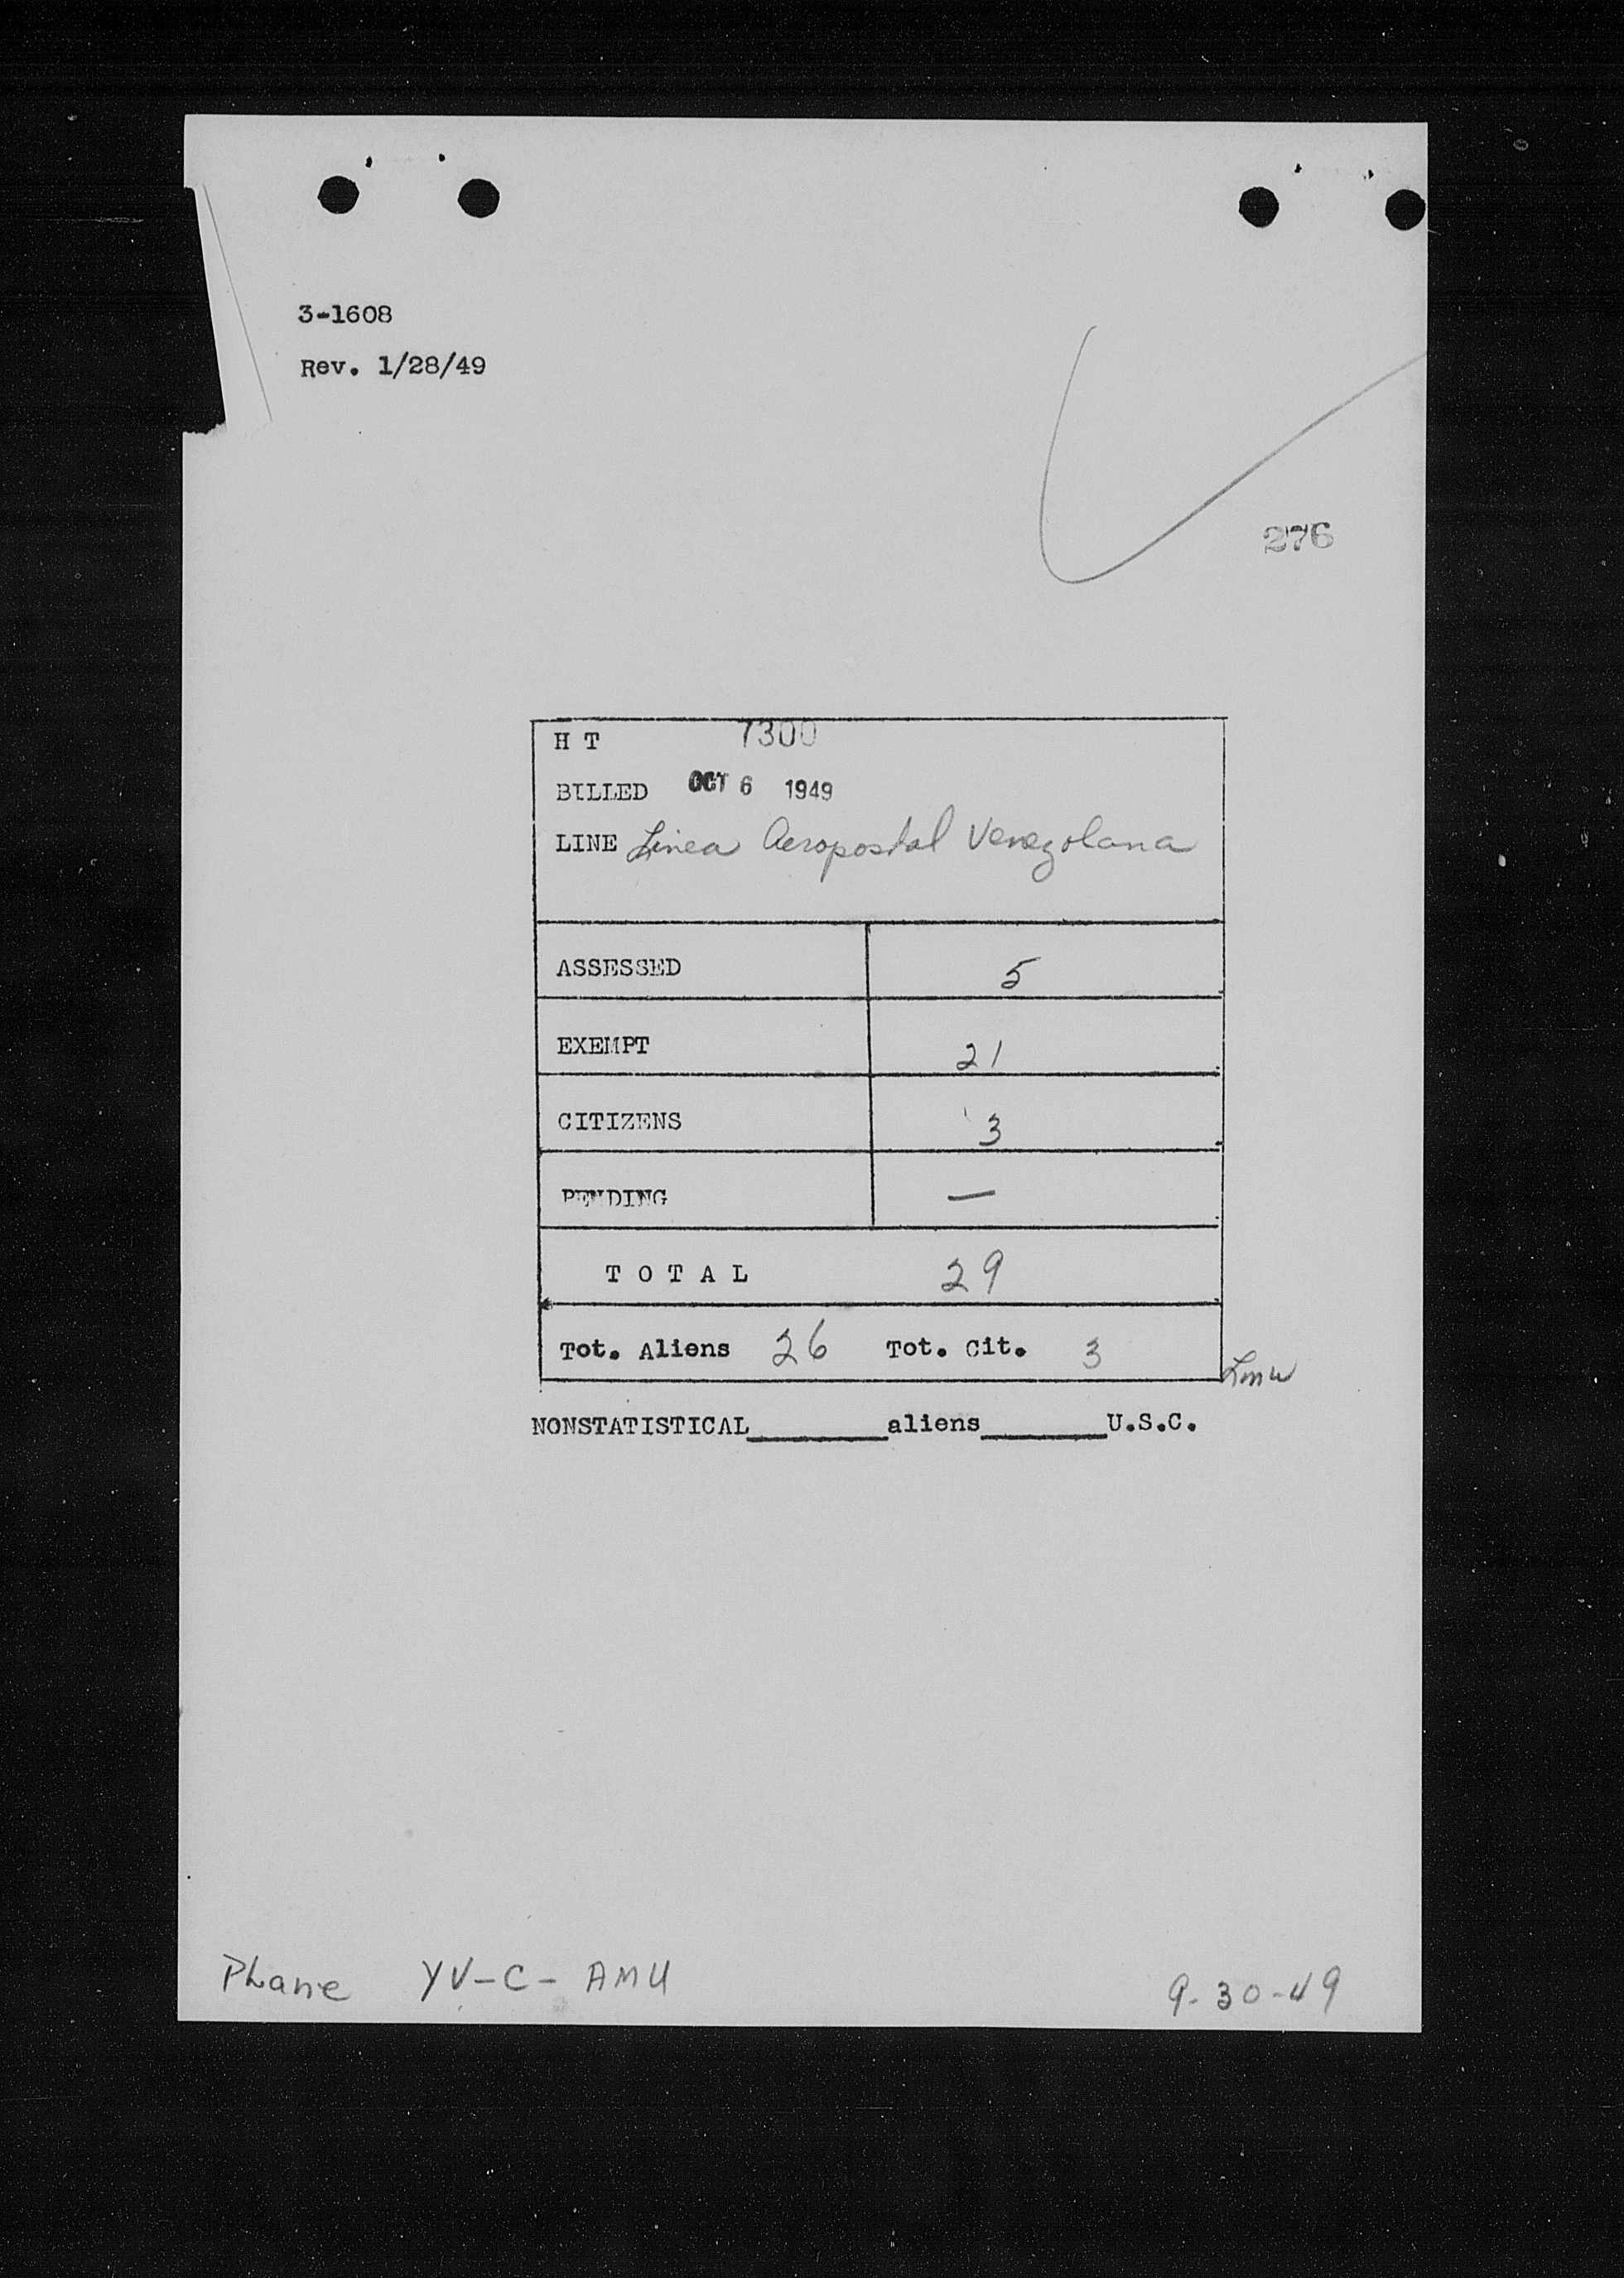 3-1608
Rev. 1/28/49
276
H T 7300
BILLED OCT 6 1949
LINE Linea Aeropostal Venezolana
ASSESSED 5
EXEMPT 21
CITIZENS 3
PENDING —
T O T A L 29
Tot. Aliens 26 Tot. Cit. 3
Lmw
NONSTATISTICAL_______aliens_______U.S.C.
Plane YV-C-AMU 9-30-49